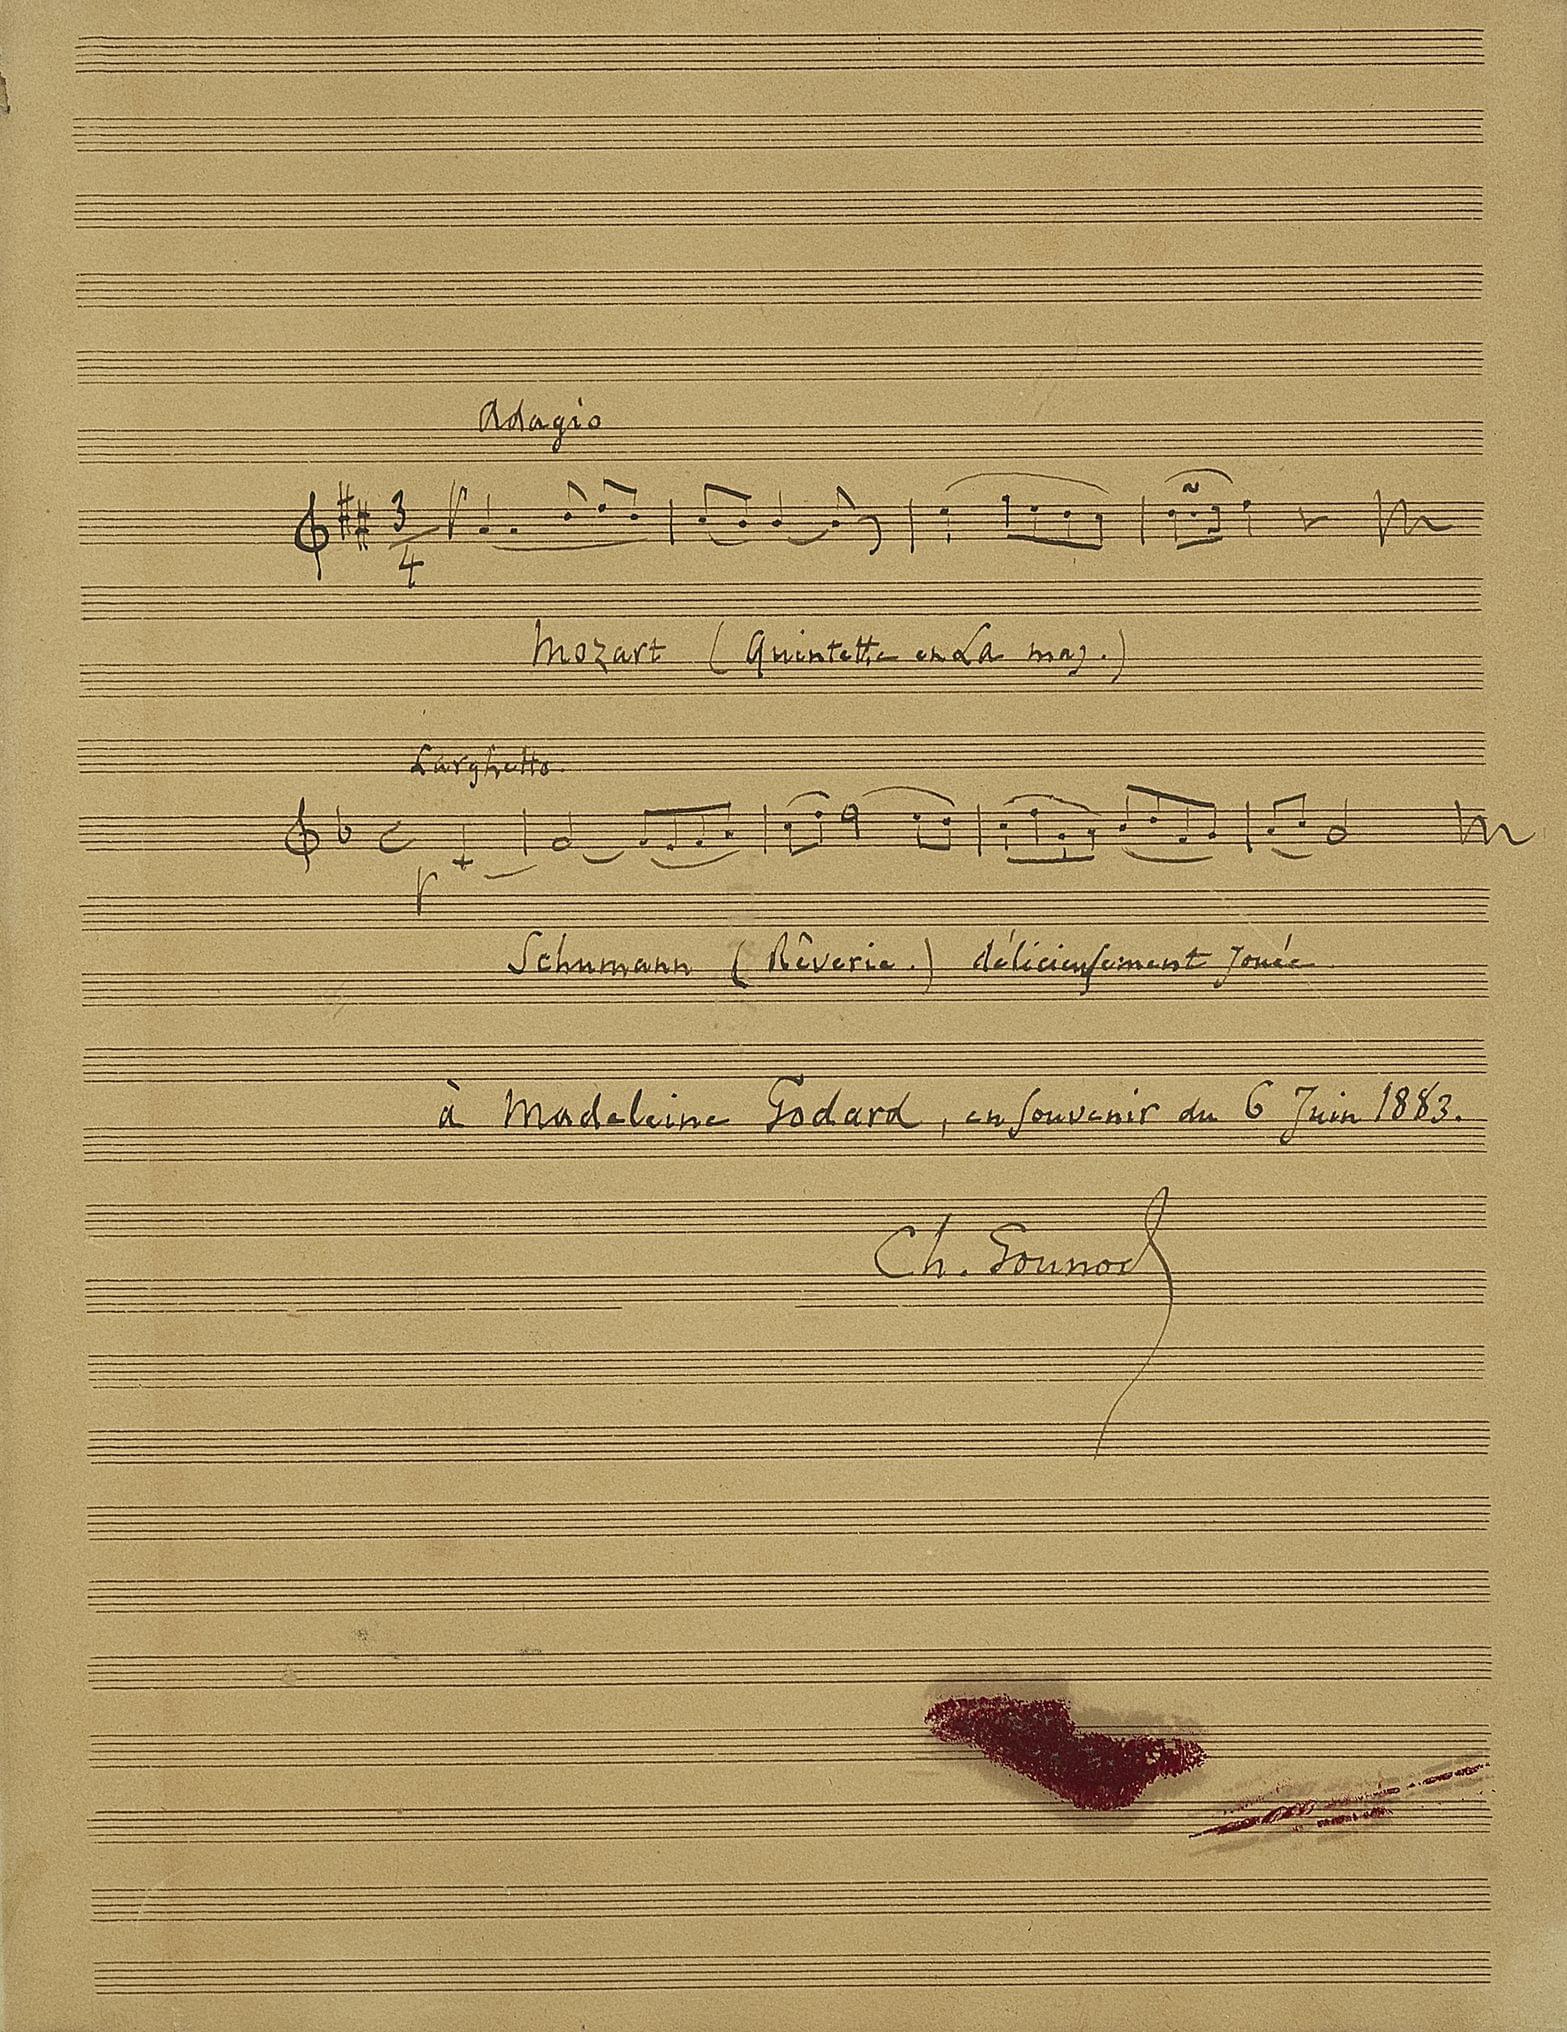 Adagio
3
4
Mozart (Quintette en La maj.)
Larghetto
Schumann (Rêverie.) délicieusement jouée
à Madeleine Godard, en souvenir du 6 Juin 1883.
Ch. Gounod